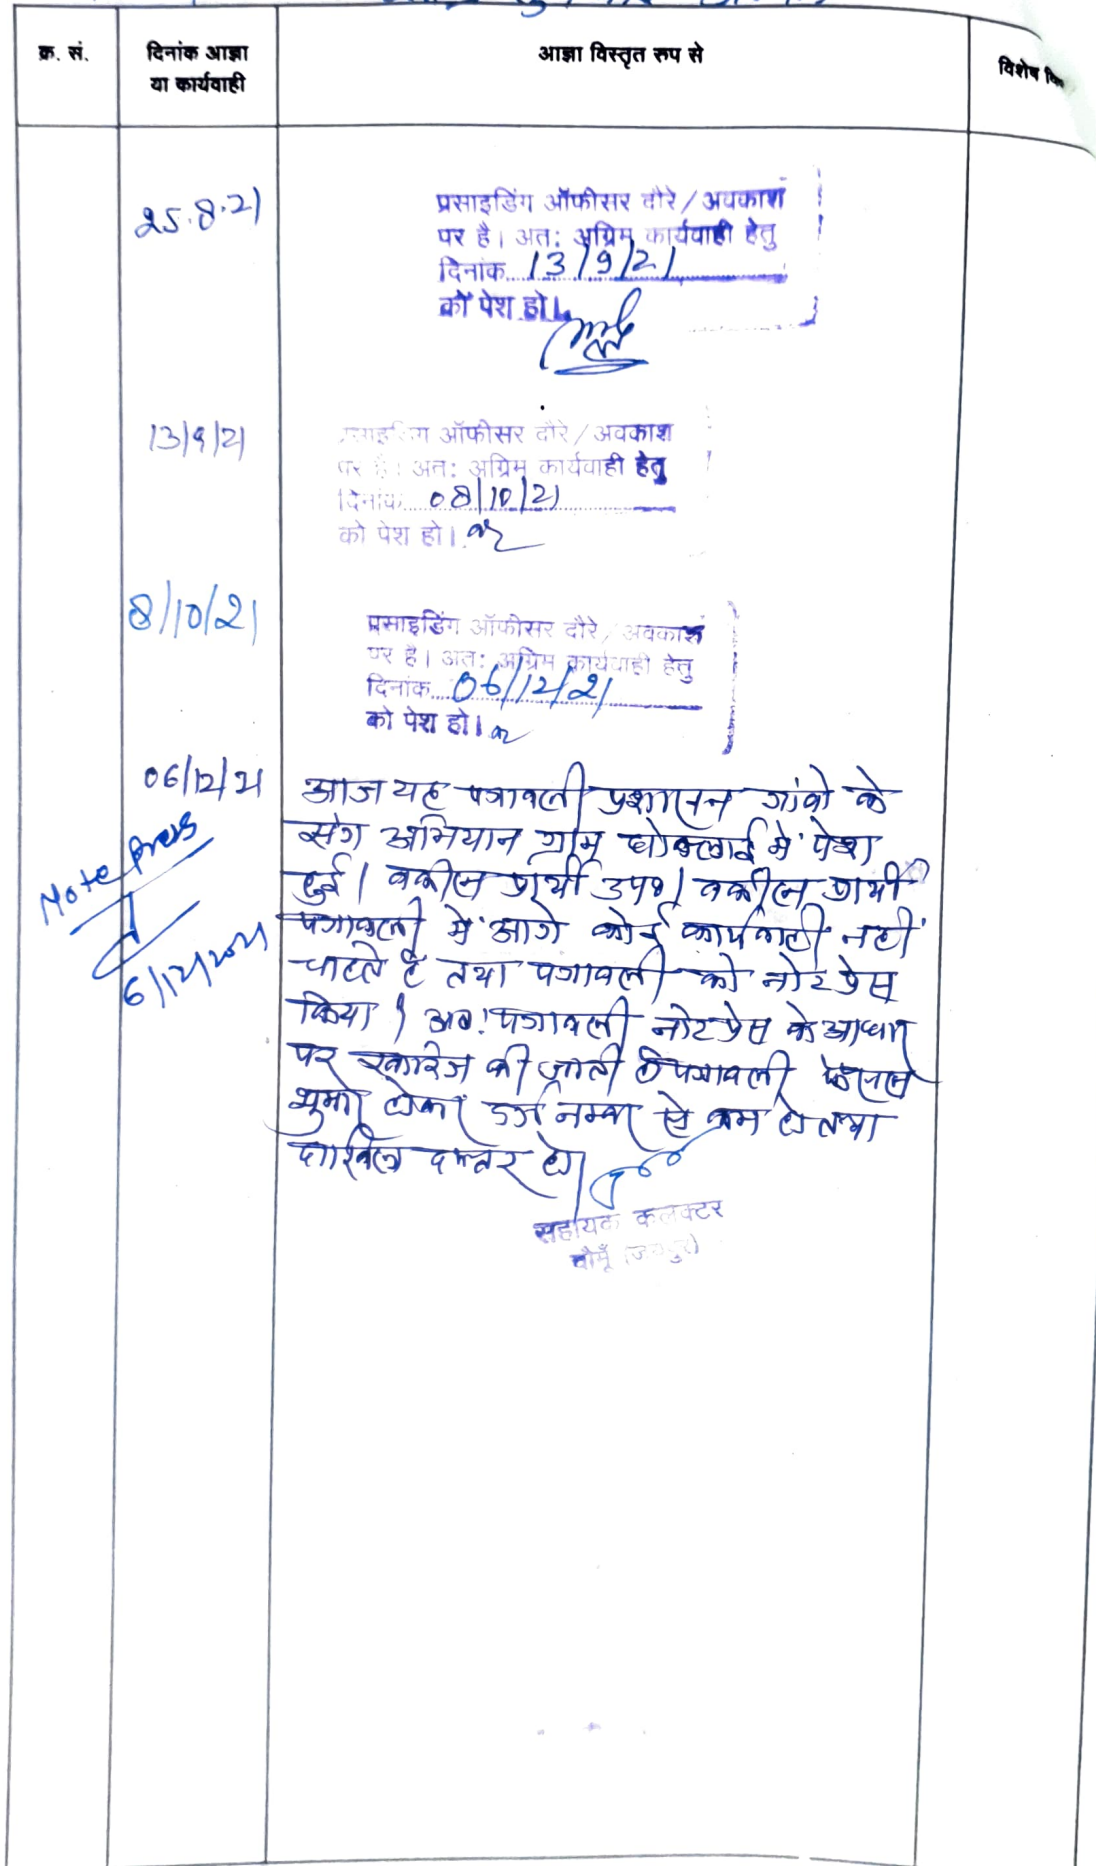 क्र. सं.
दिनांक आज्ञा
या कार्यवाही
आज्ञा विस्तृत रुप से
विशेष
25.8.21
प्रसाइडिंग ऑफीसर दौरे/अवकाश
पर है। अत: अग्रिम कार्यवाही हेतु
दिनांक 13/9/21
को पेश हो।
13/9/21
प्रसाइडिंग ऑफीसर दौरे/अवकाश
पर है। अत: अग्रिम कार्यवाही हेतु
दिनांक 08/10/21
को पेश हो।
8/10/21
प्रसाइडिंग ऑफीसर दौरे/अवकाश
पर है। अत: अग्रिम कार्यवाही हेतु
दिनांक 06/12/21
को पेश हो।
06/12/21
Note press
6/12/2021
आज यह पत्रावली प्रशासन गांवो के
संग अभियान ग्राम में पेश
हुई। वकील प्रार्थी उप०। वकील प्रार्थी
पत्रावली में आगे कोई कार्यवाही नहीं
चाहते है तथा पत्रावली को नोट प्रेस
किया। अत: पत्रावली नोट प्रेस के आधार
पर खारिज की जाती है पत्रावली फैसल
शुमार होकर दर्ज नम्बर से कम हो तथा
दाखिल दफ्तर हो।
सहायक कलक्टर
चौमूँ (जयपुर)